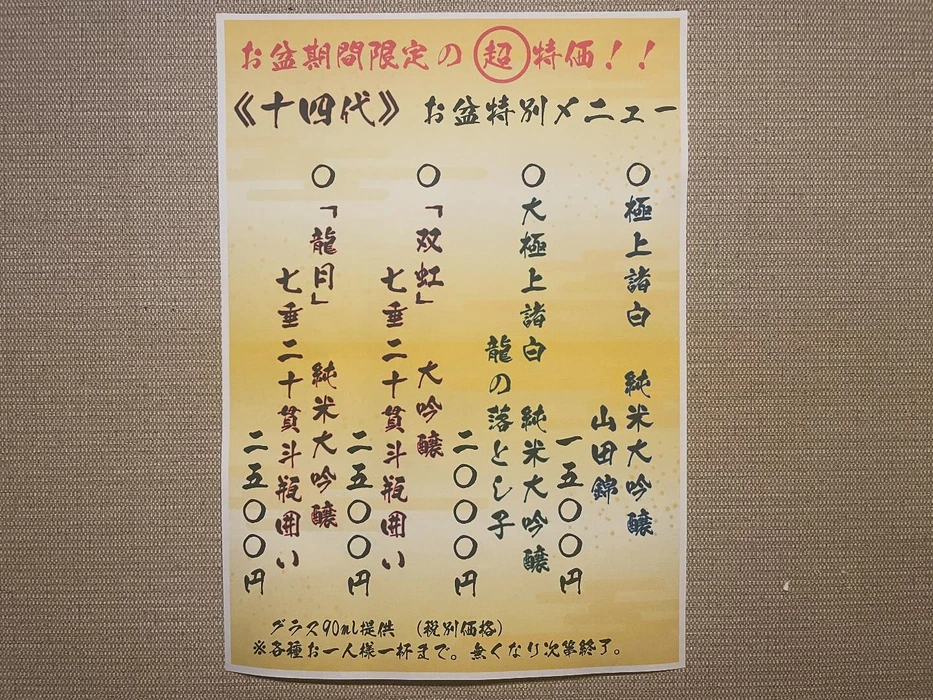 お盆期間限定の超特価！！
《十四代》 お盆特別メニュー
○極上諸白 純米大吟醸
山田錦
一五〇〇円
○大極上諸白 純米大吟醸
龍の落とし子
二〇〇〇円
○「双虹」 大吟醸
七垂二十貫斗瓶囲い
二五〇〇円
○「龍月」 純米大吟醸
七垂二十貫斗瓶囲い
二五〇〇円
グラス90ml提供 （税別価格）
※各種お一人様一杯まで。無くなり次第終了。